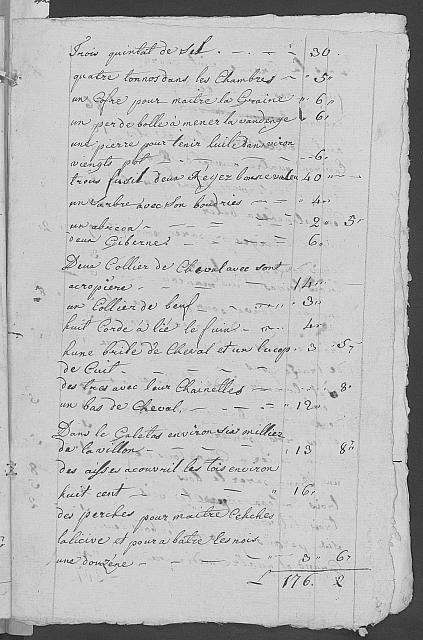 Trois quintal de Sel . - . - " 30 "
quatre tonnos dans les Chambres - " 5 "
un Cofre pour maitre la Graine " 6 "
un per de bolle à mener la vandenge " 6 "
une pierre pour tenir luile danviron
viengts pot - - - " 6 "
trois fusil deux Reyez bonse valeu 40 " -
un sarbre avec son boudries - " 4 "
un abreca - - - " 2 " 5 "
deux Gibernes - - = 6 "
Deux Collier de Cheval avec sont
acropiere - - - 14 " -
un Collier de beuf - - " 3 "
huit Corde à lié le fuin - - 4 "
hune bride de Cheval et un lucop 3 " 5 "
de Cuit - - -
des tres avec leur Chainettes - - " 8 "
un bas de Cheval, - - - = 12 "
Dans le Galetas environ six millier
de lavillon - - - " 13 8 "
des aisses a couvril les tois environ
huit cent - - - " 16 "
des perches pour maitre
lalicive et pour abatre les nois
une douzene - - - " 3 " 6 "
L 176 . 2